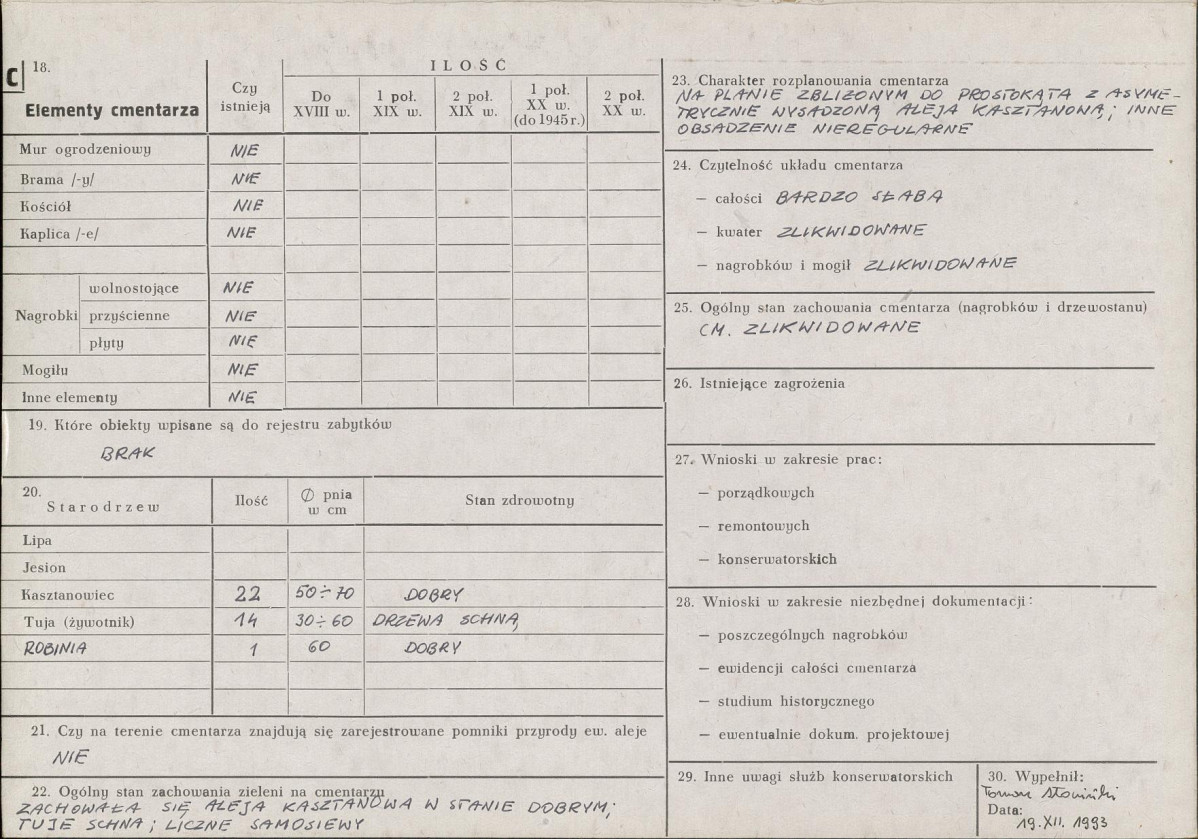 C 18.
Elementy cmentarza
Czy istnieją
ILOŚĆ
Do XVIII w.
1 poł. XIX w.
2 poł. XIX w.
1 poł. XX w. (do 1945 r.)
2 poł. XX w.
Mur ogrodzeniowy NIE
Brama /-y/ NIE
Kościół NIE
Kaplica /-e/ NIE
Nagrobki
wolnostojące NIE
przyścienne NIE
płyty NIE
Mogiły NIE
Inne elementy NIE
19. Które obiekty wpisane są do rejestru zabytków
BRAK
20. Starodrzew
Ilość
∅ pnia w cm
Stan zdrowotny
Lipa
Jesion
Kasztanowiec 22 50÷70 DOBRY
Tuja (żywotnik) 14 30÷60 DRZEWA SCHNĄ
ROBINIA 1 60 DOBRY
21. Czy na terenie cmentarza znajdują się zarejestrowane pomniki przyrody ew. aleje
NIE
22. Ogólny stan zachowania zieleni na cmentarzu
ZACHOWAŁA SIĘ ALEJA KASZTANOWA W STANIE DOBRYM;
TUJE SCHNĄ; LICZNE SAMOSIEWY
23. Charakter rozplanowania cmentarza
NA PLANIE ZBLIŻONYM DO PROSTOKĄTA Z ASYME-
TRYCZNIE WYSADZONĄ ALEJĄ KASZTANOWĄ; INNE
OBSADZENIE NIEREGULARNE
24. Czytelność układu cmentarza
— całości BARDZO SŁABA
— kwater ZLIKWIDOWANE
— nagrobków i mogił ZLIKWIDOWANE
25. Ogólny stan zachowania cmentarza (nagrobków i drzewostanu)
CM. ZLIKWIDOWANE
26. Istniejące zagrożenia
27. Wnioski w zakresie prac:
— porządkowych
— remontowych
— konserwatorskich
28. Wnioski w zakresie niezbędnej dokumentacji:
— poszczególnych nagrobków
— ewidencji całości cmentarza
— studium historycznego
— ewentualnie dokum. projektowej
29. Inne uwagi służb konserwatorskich
30. Wypełnił:
Data:
19.XII.1993